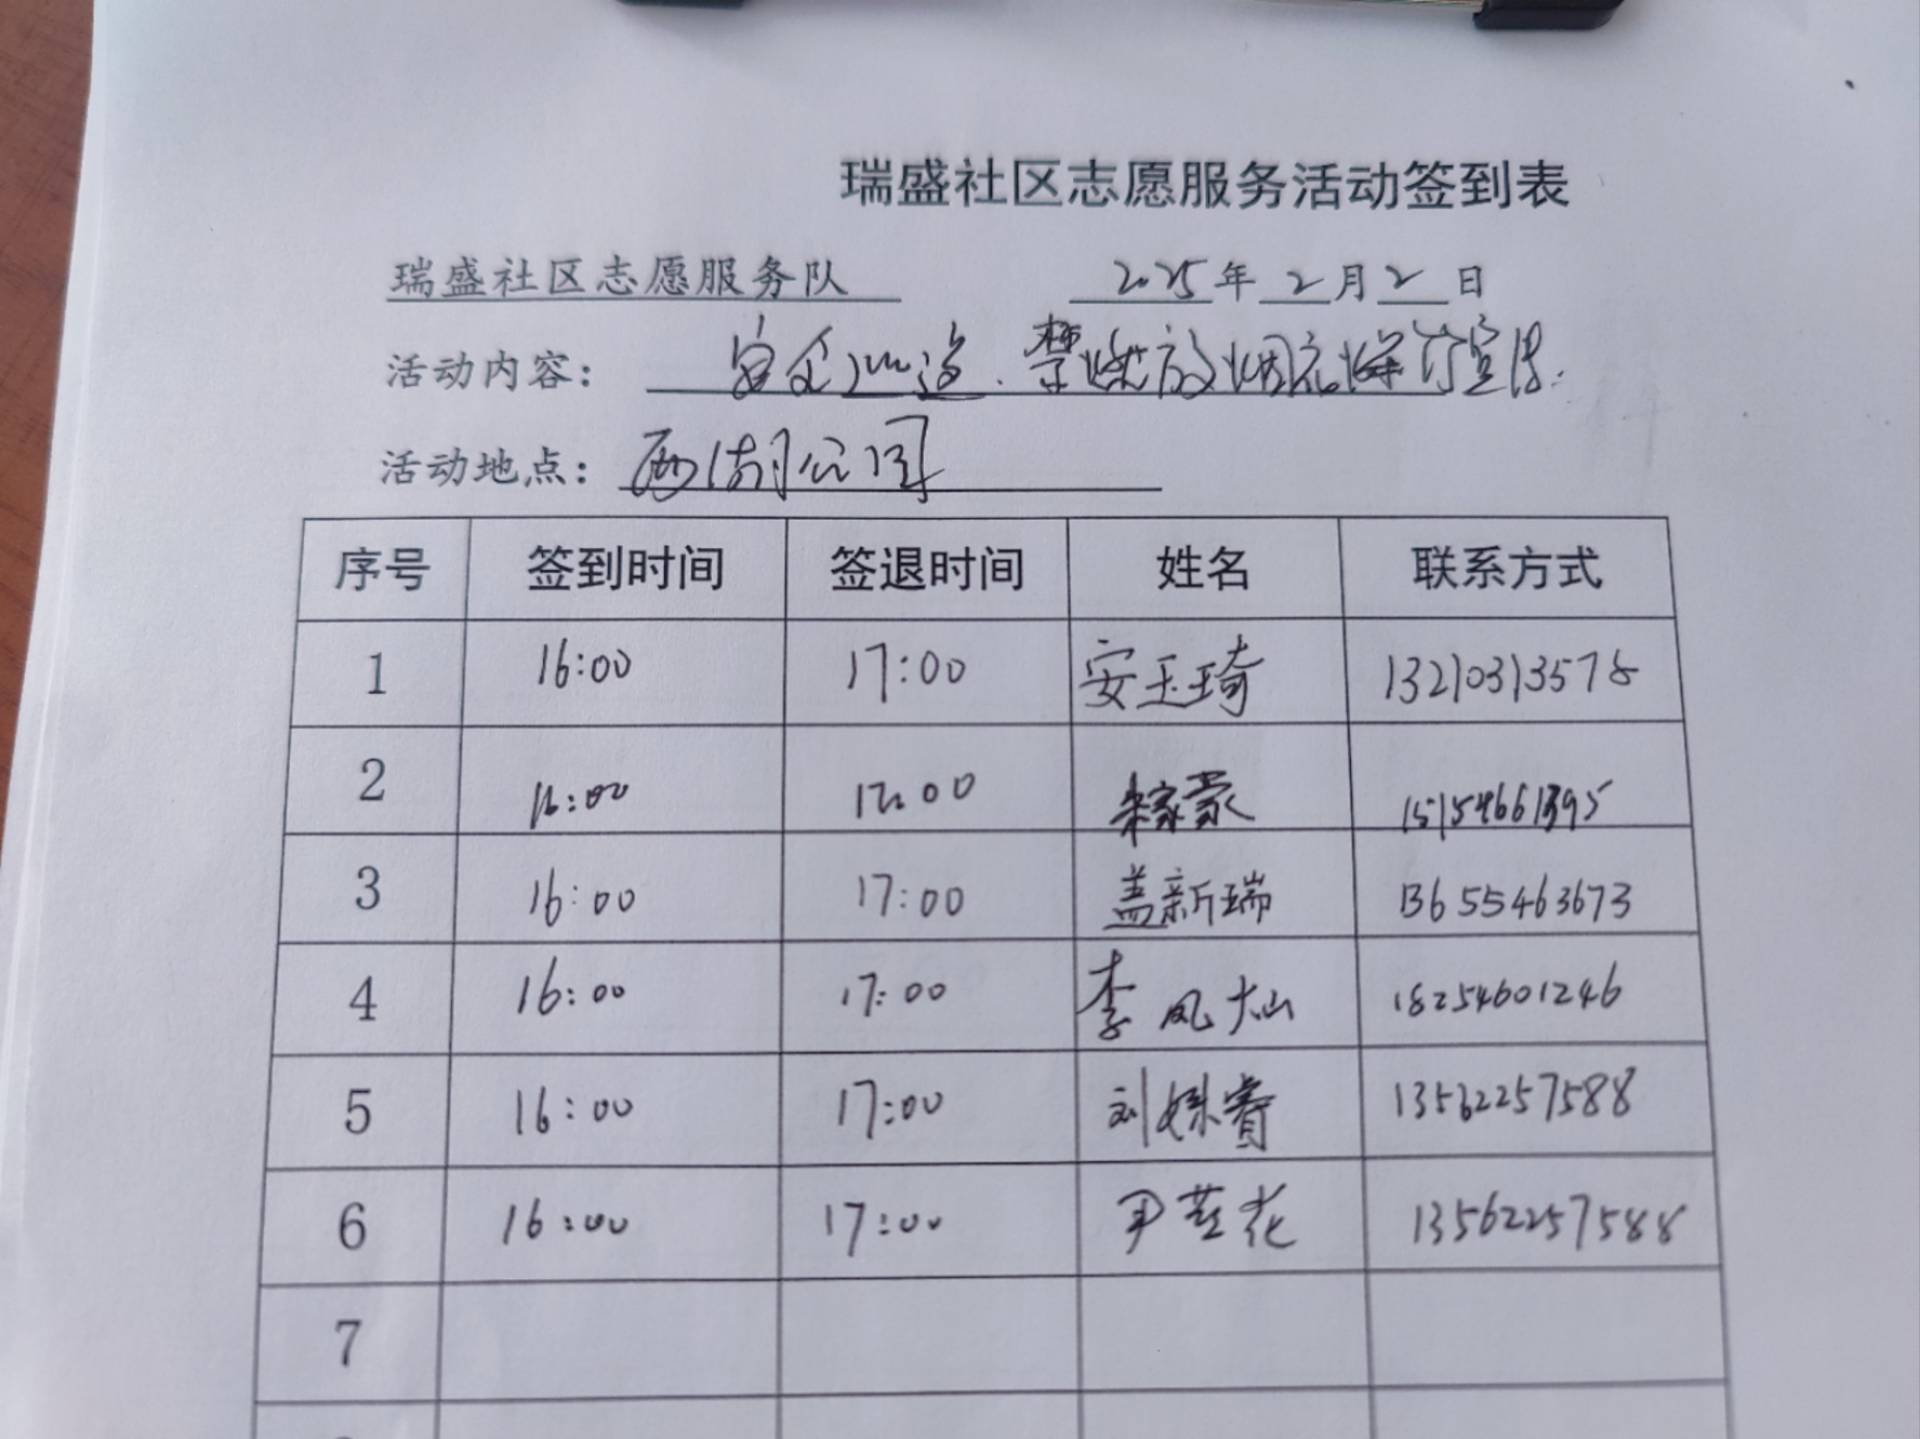 瑞盛社区志愿服务活动签到表
瑞盛社区志愿服务队 2025年2月2日
活动内容：安全巡逻.禁燃放烟花爆竹宣传.
活动地点：西湖公园
序号 签到时间 签退时间 姓名 联系方式
1 16:00 17:00 安玉琦 13210313578
2 16:00 17:00 15154661395
3 16:00 17:00 盖新瑞 13655463673
4 16:00 17:00 李凤灿 18254601246
5 16:00 17:00 刘姝睿 13562257588
6 16:00 17:00 尹花 13562257588
7